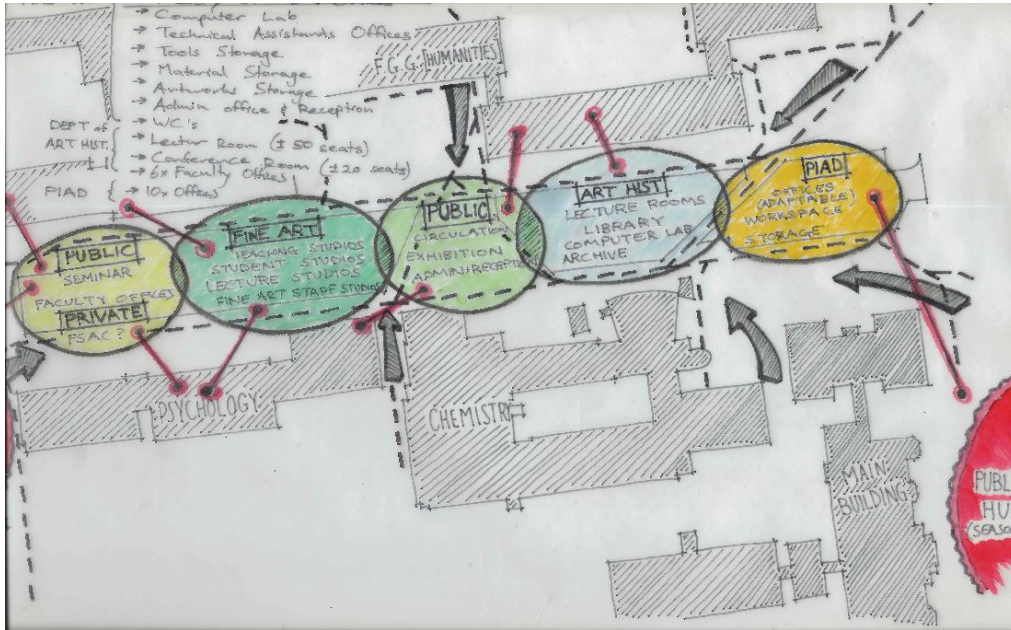 → Computer Lab
→ Technical Assistants Offices
→ Tools Storage
→ Material Storage
→ Artworks Storage
→ Admin office & Reception
→ WC's
DEPT of
ART HIST.
→ Lectur Room (± 50 seats)
→ Conference Room (± 20 seats)
→ 6x Faculty Offices
PIAD → 10x Offices
F.G.G. HUMANITIES
PUBLIC
SEMINAR
FACULTY OFFICES
PRIVATE
FSAC?
FINE ART
TEACHING STUDIOS
STUDENT STUDIOS
LECTURE STUDIOS
FINE ART STAFF STUDIOS
PUBLIC
CIRCULATION
EXHIBITION
ADMIN+RECEPT
ART HIST
LECTURE ROOMS
LIBRARY
COMPUTER LAB
ARCHIVE
PIAD
OFFICES
(ADAPTABLE)
WORKSPACE
STORAGE
PSYCHOLOGY
CHEMISTR
MAIN
BUILDING
PUBL
HU
(SEASO